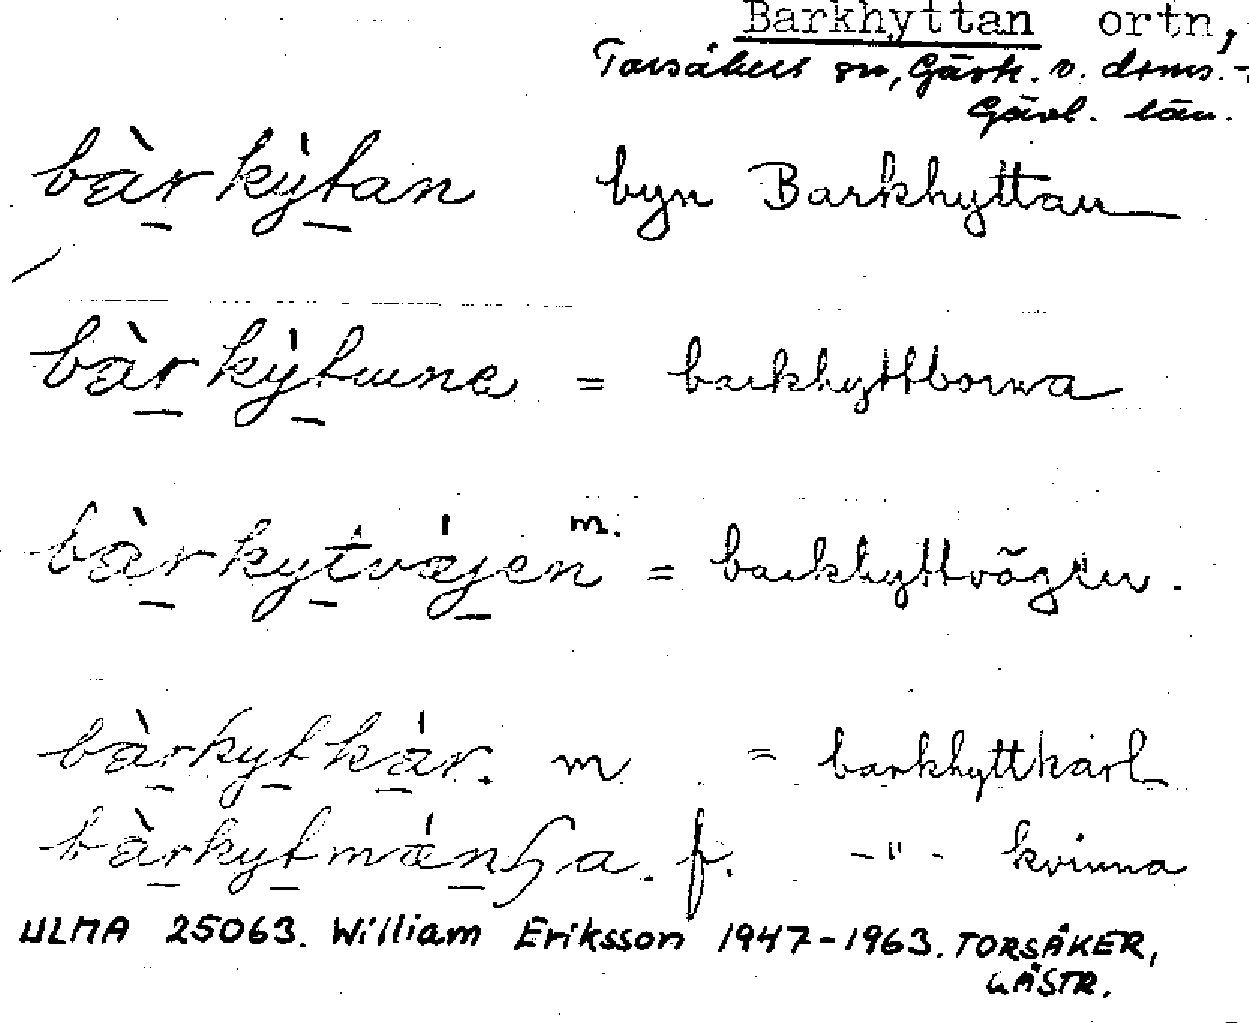 Barkhyttan ortn,
Torsåkers sn, Gästr. v. doms.-
Gävl. län.
bàrkýtan byn Barkhyttan
bàrkýtɯne = barkhyttborna
bàrkytvǽjen m. = barkhyttvägen.
bàrkytkár. m = barkhyttkarl
bàrkytmǽnʃa. f. -"- kvinna
ULMA 25063. William Eriksson 1947-1963. TORSÅKER,
GÄSTR.